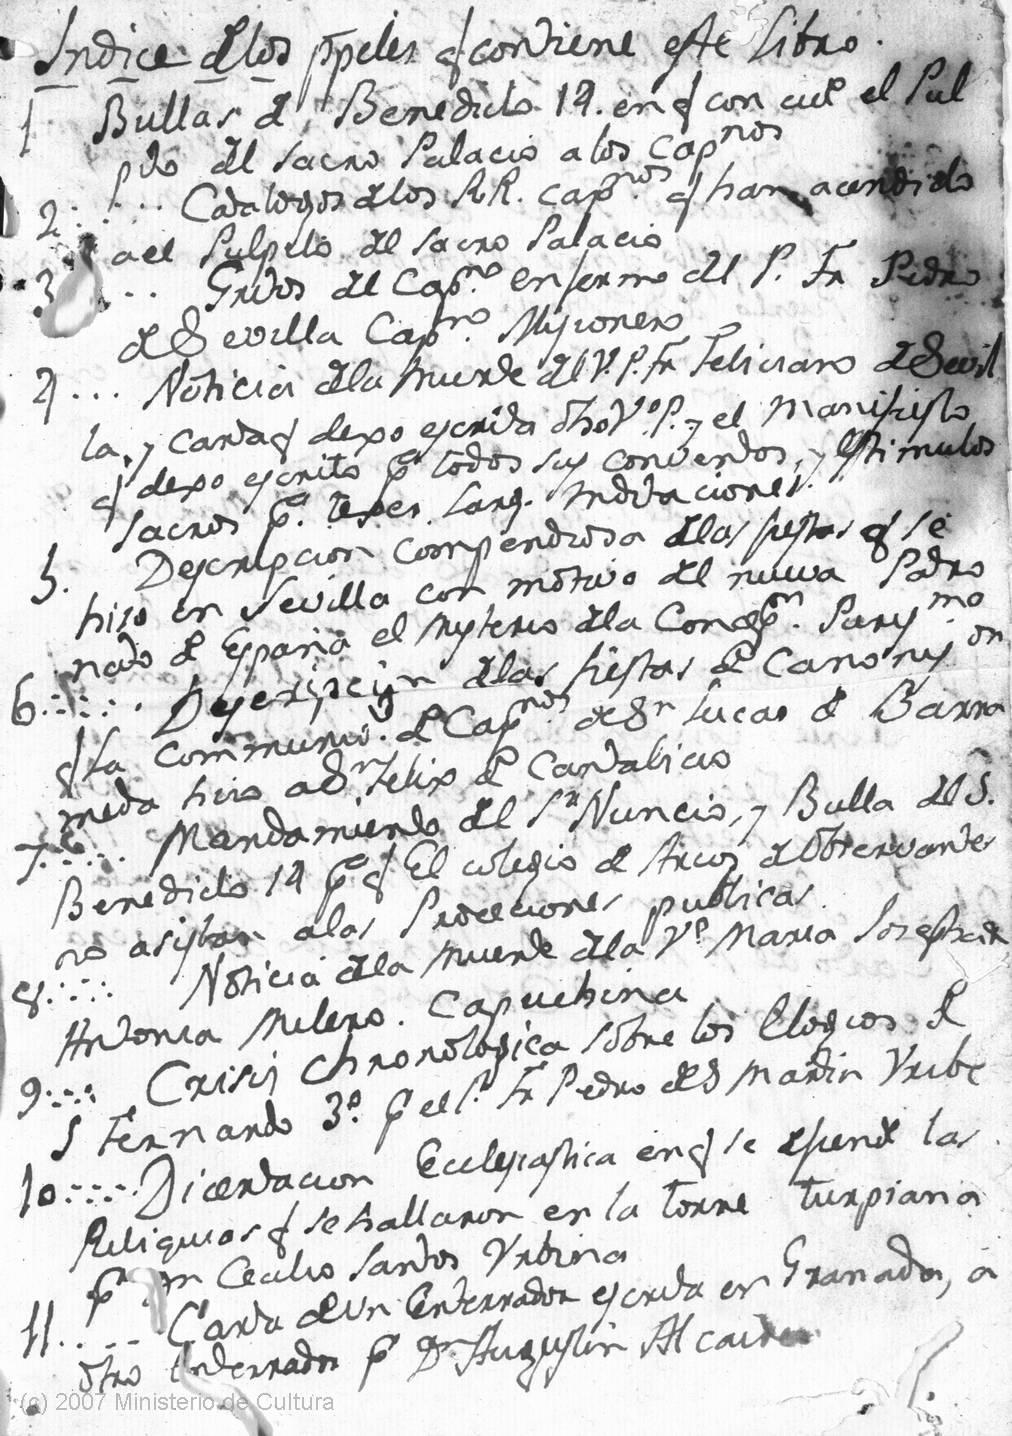 Indice de los ppeles q contiene este Libro.
1 Bullas de Benedicto 14. en q concede el Pul
pito del Sacro Palacio a los Capnos
2 Catalogos de los RR. Capnos. q han acendido
a el Pulpito del Sacro Palacio
3 Gritos del Capno. enfermo del P. Fr Pedro
de Sevilla Capno. Missionero
4 Noticia de la Muerte del V. P. Fr Feliciano de Sevil
la, y Carta q dexo escrita dho Vo P. y el Manifiesto
q dexo escrito pa todos sus conventos, y Estimulos
Sacros pa. Sang. Meditaciones.
5. Descripcion compendiosa de las fiestas q se
hizo en Sevilla con motivo del nueva Patro
nato de España el Mysterio de la Concepn. Purismo
6 Descripcion de las fiestas de Canonizon
q la Communid. de Capnos de Sn Lucar de Barra
meda hizo a Sn Felix de Cantalicio
7 Mandamiento del Sr Nuncio, y Bulla del S.
Benedicto 14 pa q El colegio de Arcos de Observantes
no asistan a las Proceciones publicas.
8 Noticia de la Muerte de la Ve Maria Josepha de
Antonia Milero. Capuchina
9 Crisis Chronologica sobre los Elogios de
S Fernando 3o. pr el P. Fr Pedro de S Martin Uribe
10 Dicertacion Eclesiastica en q se defiende las
Reliquias q se hallaron en la torre turpiana
pr Dn Cecilio Santos Urbina
11 Carta de Un Enterrador escrita en Granada, a
otro Enterrador pr Dn Augustin Alcaide
(c) 2007 Ministerio de Cultura